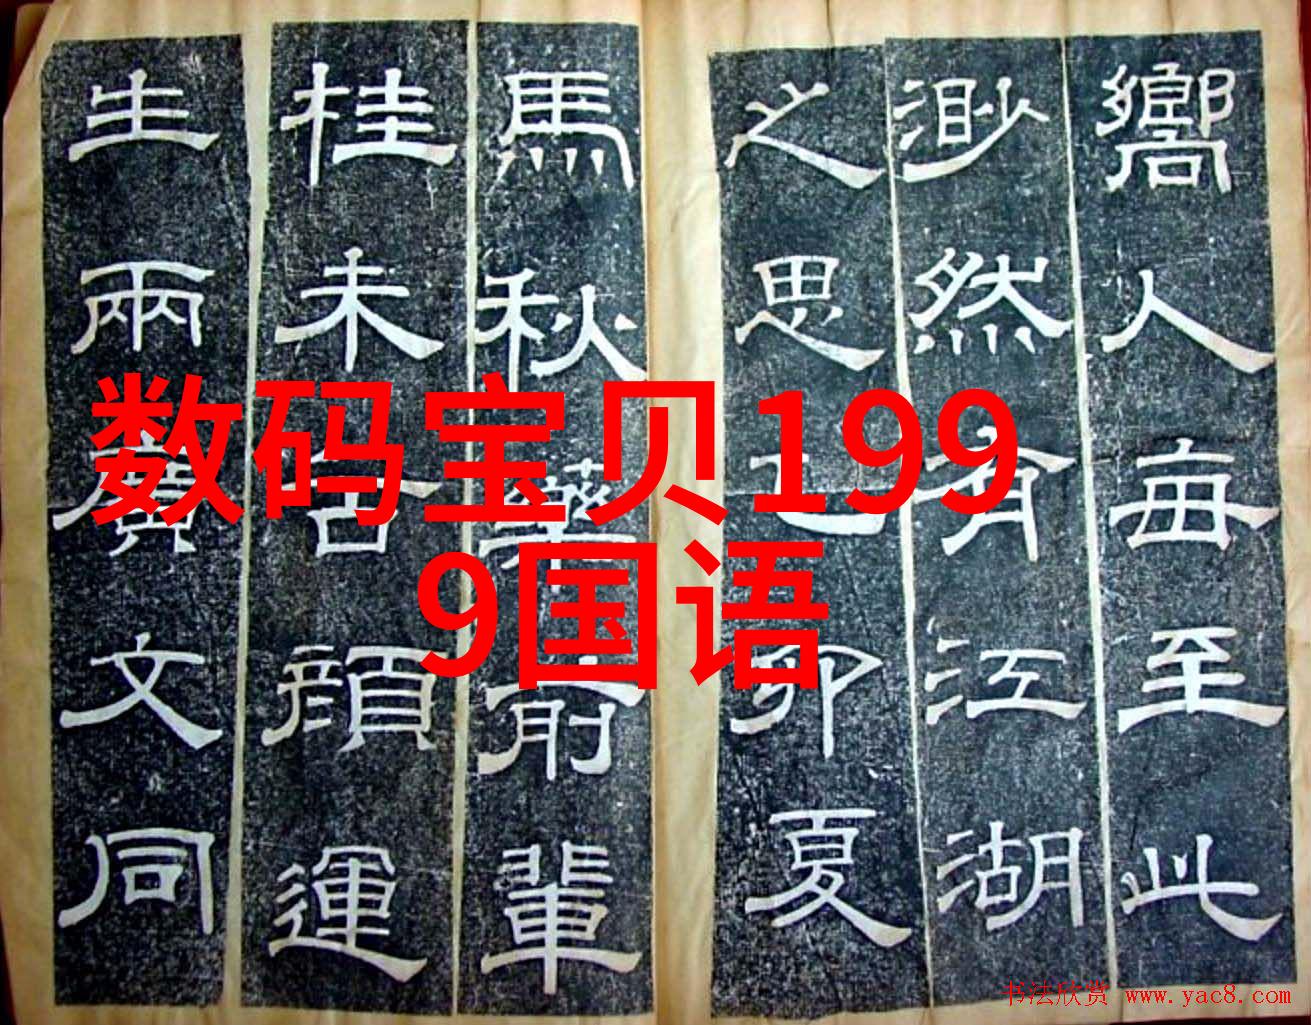 嚮人每至此
渺然有江湖
之思乙卯夏
馬秋藥前輩
桂未谷顔運
生兩廣文同
数码宝贝199
9国语
书法欣赏 www.yac8.com